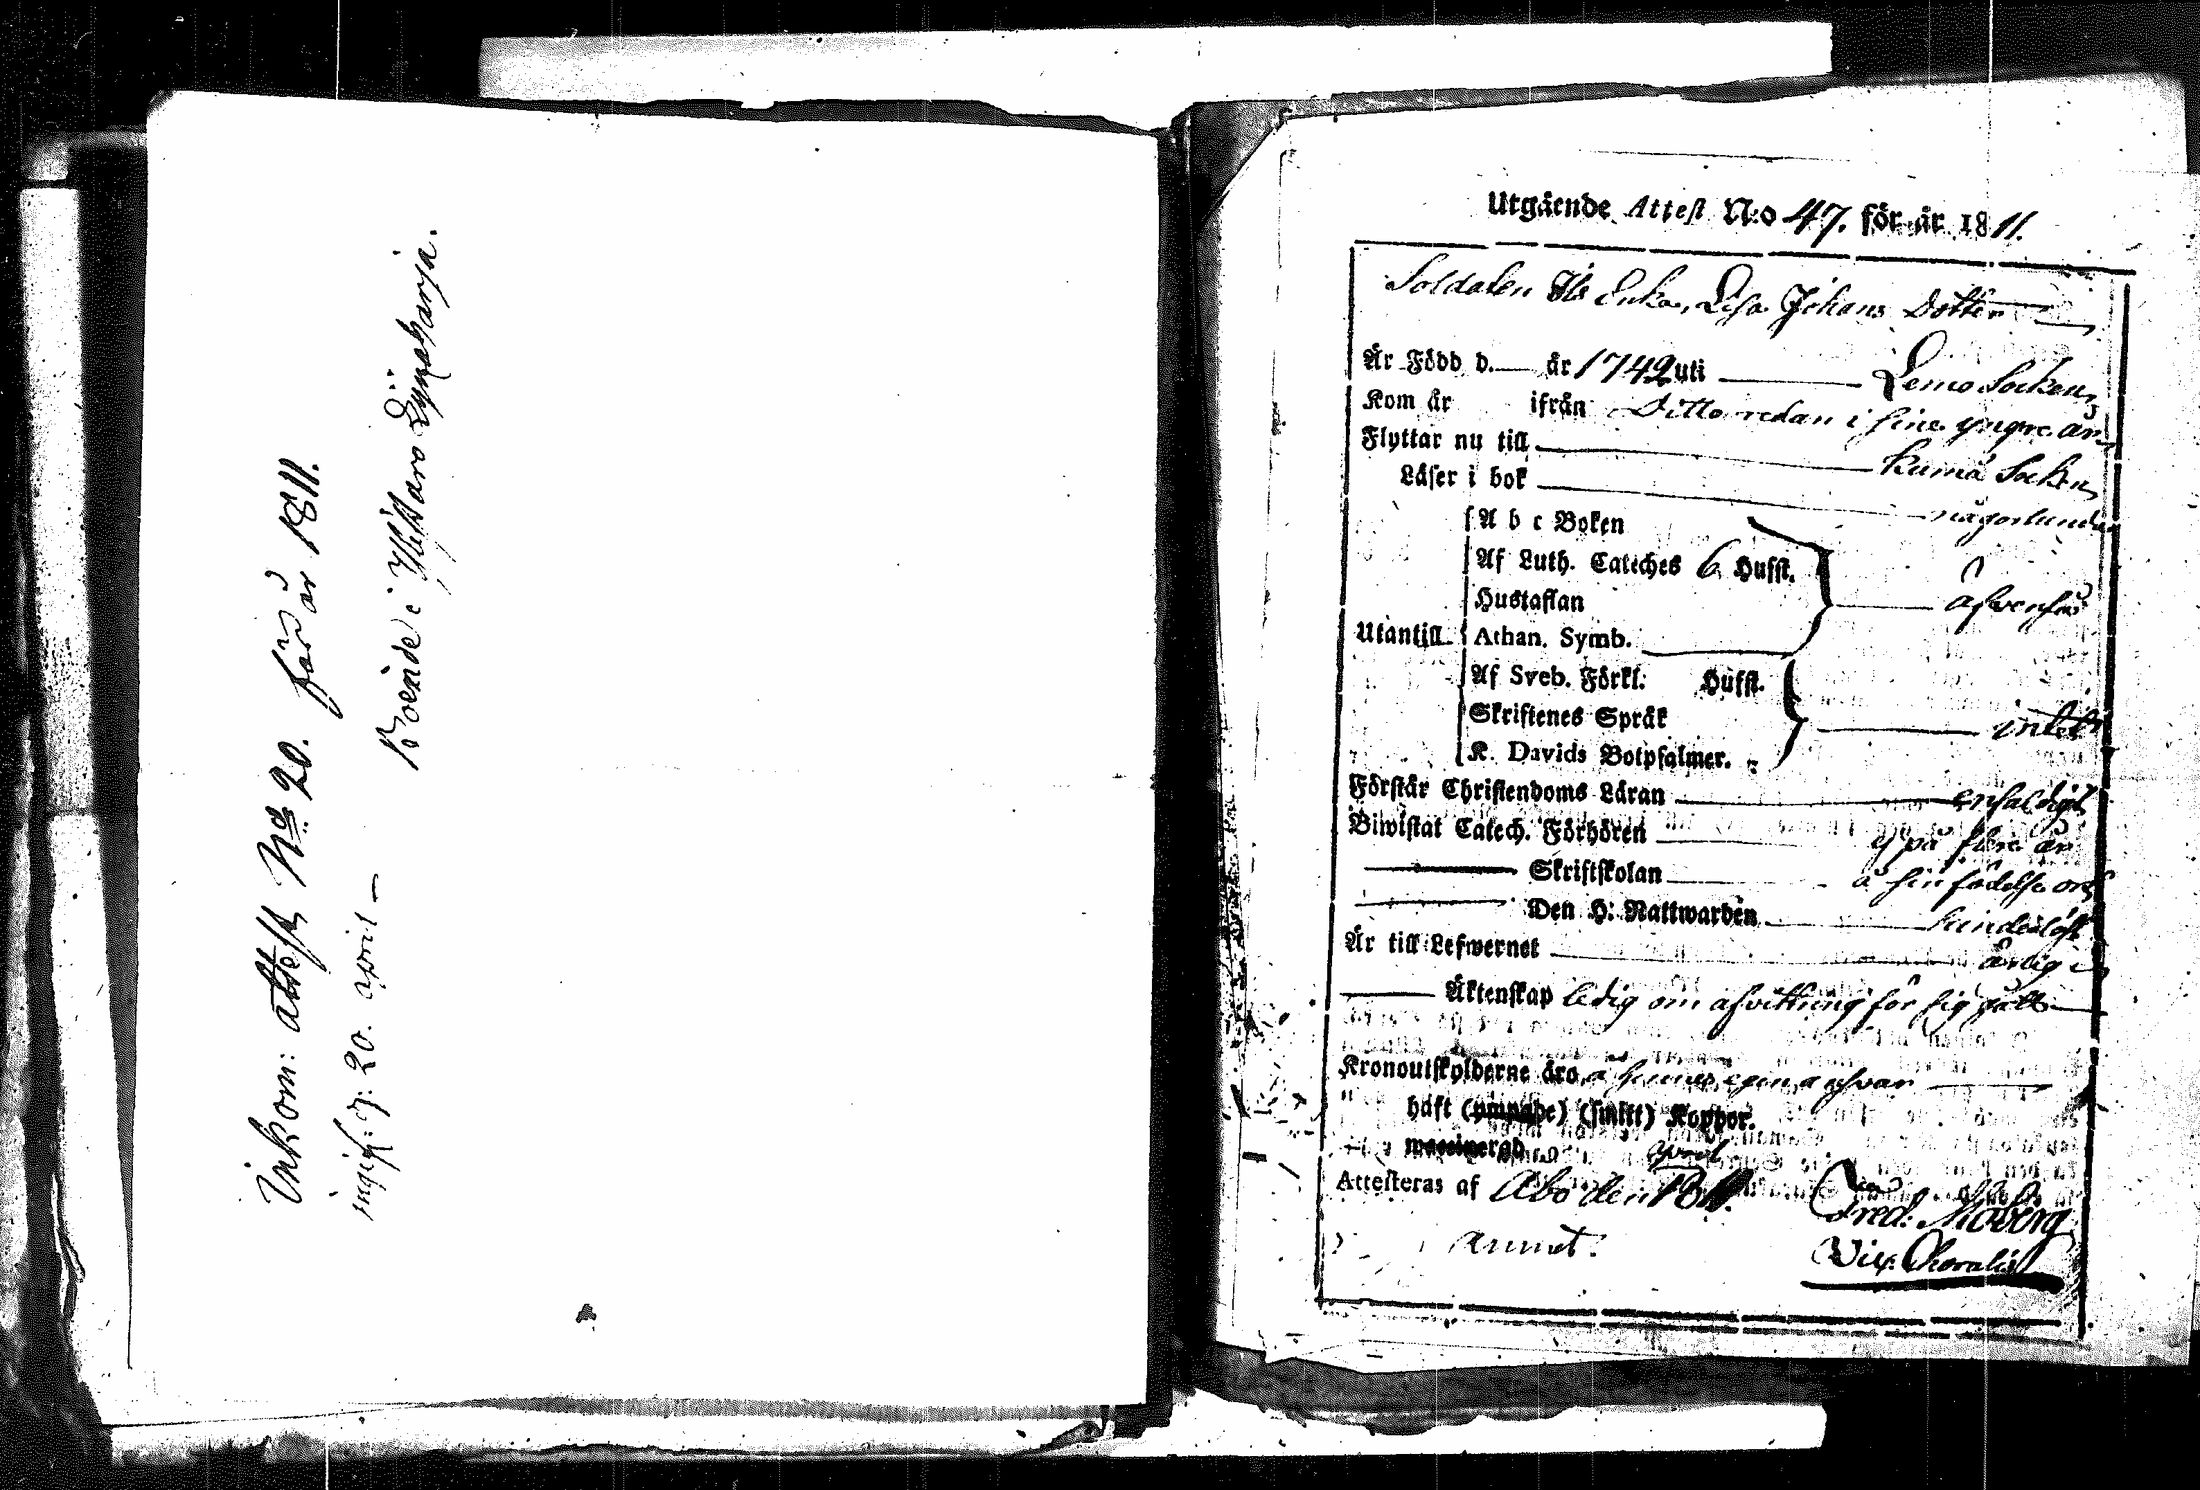 Inkom: attest No 20. för år 1811.
ingif: d: 20. april —
Boende i
Utgående Attest N:o 47. för år 1811.
Soldaten Enka, Lisa Johans Dotter
Är Född d. — år 1742 uti Lemo Socken,
Kom år ifrån Ditto redan i sine yngre år
Flyttar nu till Rumä Socken,
Läser i bok någorlunda
Utantill
A b c Boken
Af Luth. Cateches 6 Hufst.
Hustaflan
Athan. Symb.
äfvenså
Af Sveb. Förkl. Hufst.
Skriftenes Språk
K. Davids Botpsalmer.
intet
Förstår Christendoms Läran enfaldigt
Biwistat Catech. Förhören ej på flere år
Skriftskolan å sin födelse ort
Den H: Nattwarden hinderlöst
Är till Lefwernet ärlig
Äktenskap ledig om afvittring för sig gått
Kronoutskylderne äro å hennes egen answar
haft (ympade) (smitt) Koppor.
waccinerad
april
Attesteras af Åbo den 1811.
Fred: Moberg
Vic. Choralist